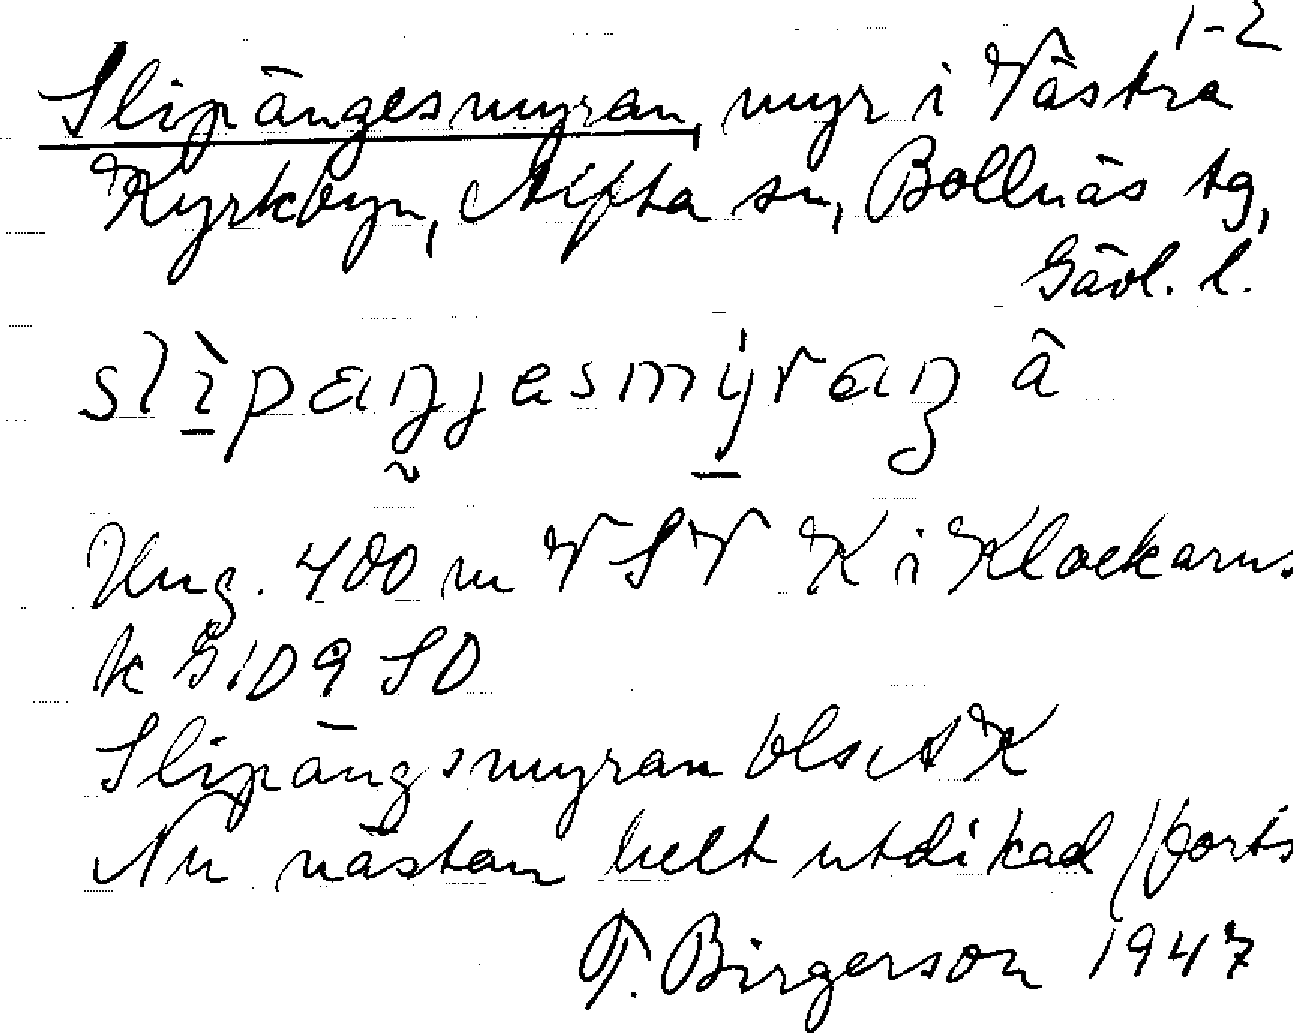 1-2
Slipängesmyran, myr i Västra
Kyrkbyn, Alfta sn, Bollnäs tg,
Gävl. l.
slìpaŋjesmýran â
Ung. 400 m VSV K i Klockarns
k G109 SO
Slipängsmyran blsAK
Nu nästan helt utdikad /forts
T. Birgerson 1947